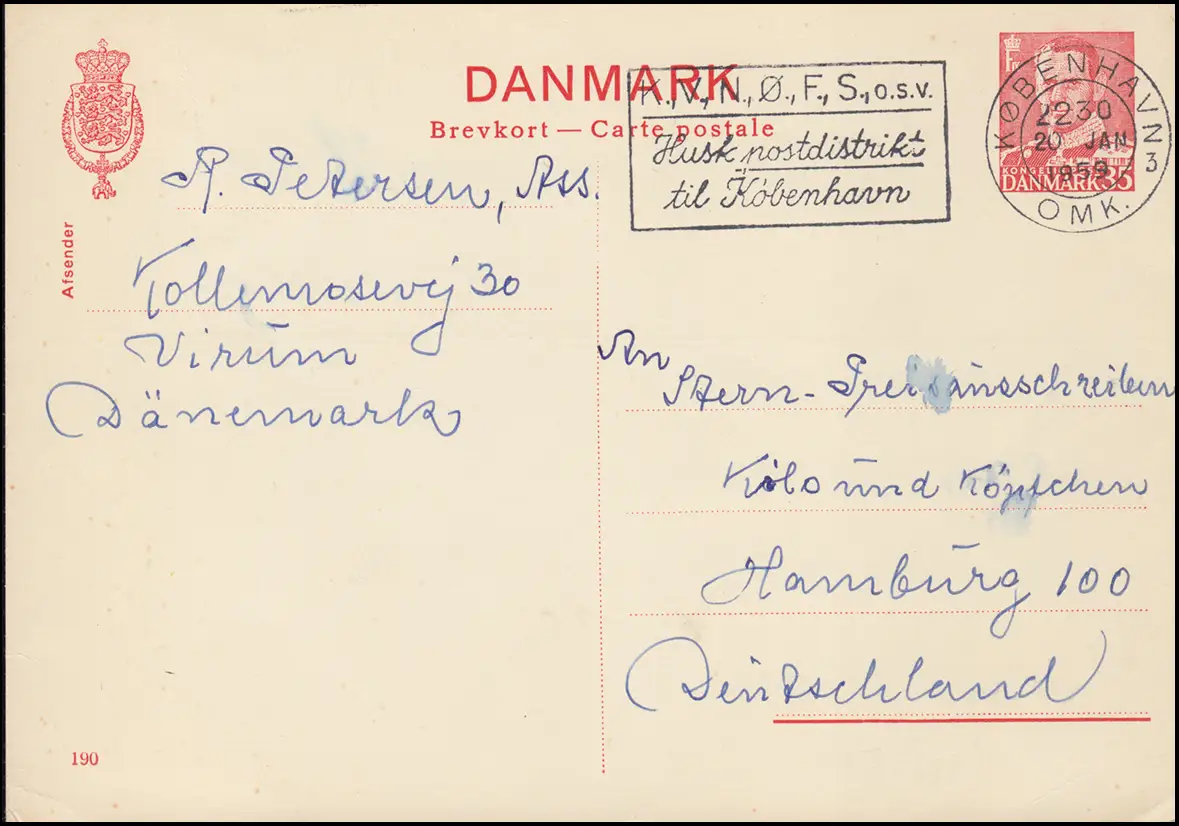 DANMARK
Brevkort — Carte postale
K., V., N., Ø., F., S., o.s.v.
Husk postdistrikt
til København
KØBENHAVN
OMK.
3
2230
20 JAN
1959
DANMARK 35
Afsender
R. Petersen, Ass.
Kollemosevej 30
Virum
Dänemark
An
Stern-Preisausschreiben
Kilo und Köpfchen
Hamburg 100
Deutschland
190